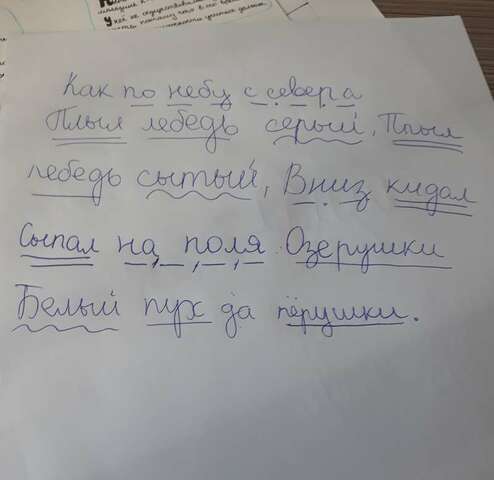 Как по небу с севера
Плыл лебедь серый, Плыл
лебедь сытый, Вниз кидал
Сыпал на поля Озерушки
Белый пух да пёрушки.